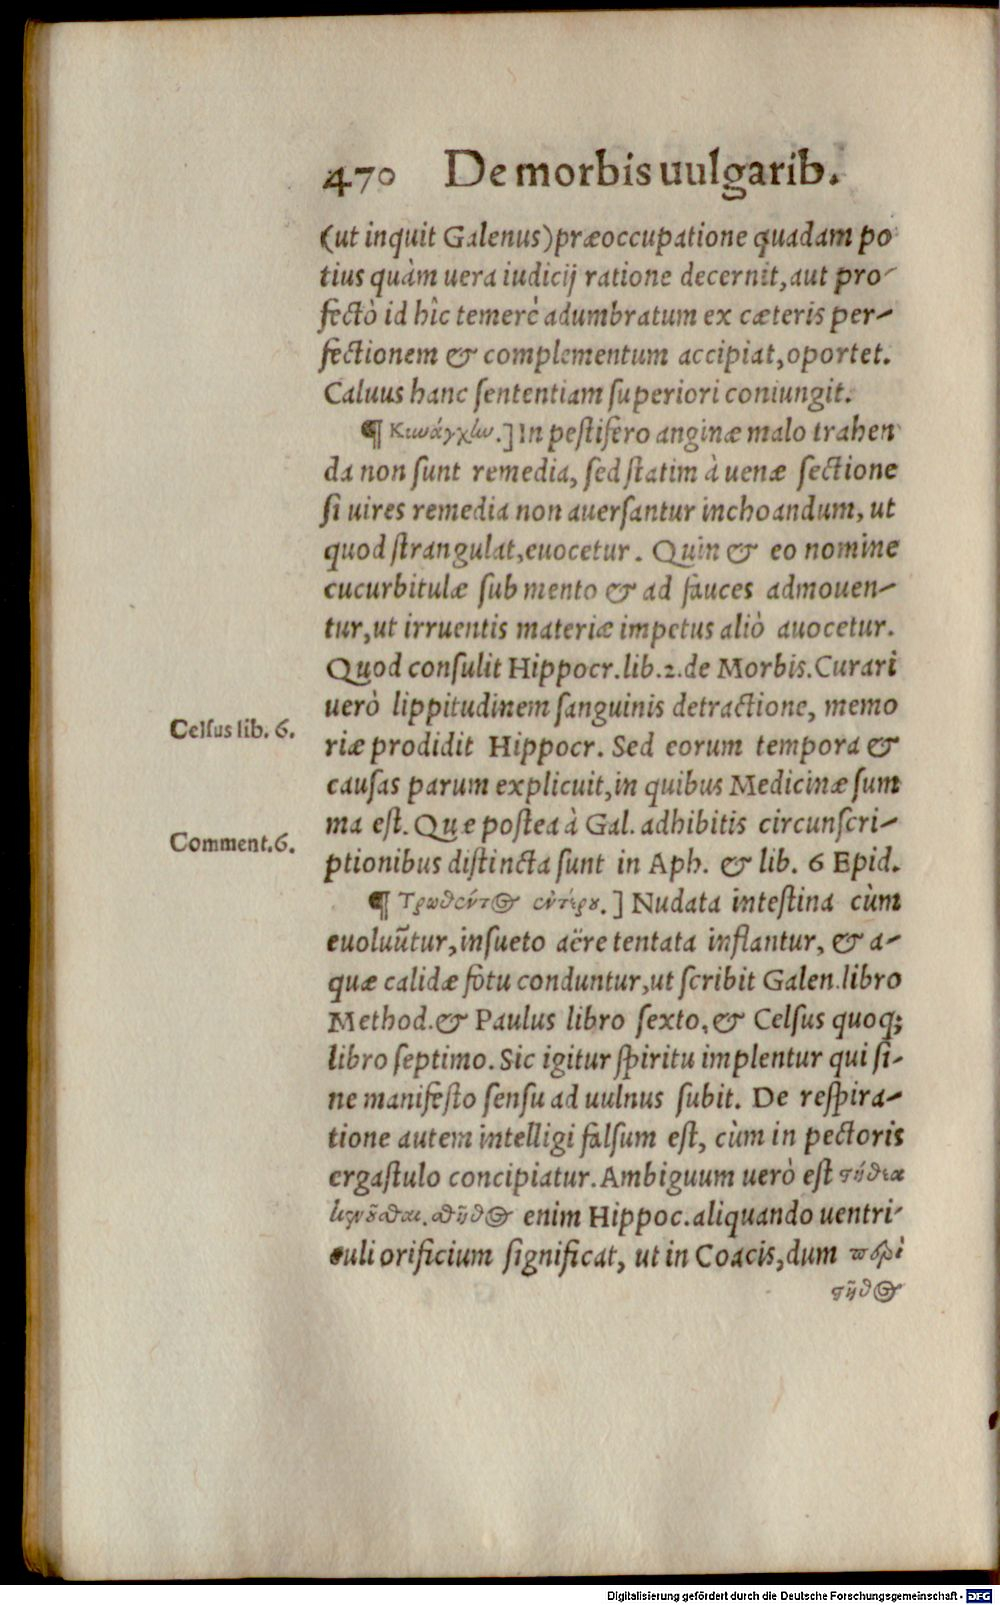 470 De morbis uulgarib.
(ut inquit Galenus) præoccupatione quadam po
tius quàm uera iudicij ratione decernit, aut pro-
fectò id hîc temerè adumbratum ex cæteris per-
fectionem & complementum accipiat, oportet.
Caluus hanc sententiam superiori coniungit.
¶ Κυνάγχην.] In pestifero anginæ malo trahen
da non sunt remedia, sed statim à uenæ sectione
si uires remedia non auersantur inchoandum, ut
quod strangulat, euocetur. Quin & eo nomine
cucurbitulæ sub mento & ad fauces admouen-
tur, ut irruentis materiæ impetus aliò auocetur.
Quod consulit Hippocr. lib. 2. de Morbis. Curari
uerò lippitudinem sanguinis detractione, memo
Celsus lib. 6.
riæ prodidit Hippocr. Sed eorum tempora &
causas parum explicuit, in quibus Medicinæ sum
ma est. Quæ postea à Gal. adhibitis circunscri-
Comment. 6.
ptionibus distincta sunt in Aph. & lib. 6 Epid.
¶ Τρωθέντος ἐντέρου.] Nudata intestina cùm
euoluũtur, insueto aëre tentata inflantur, & a-
quæ calidæ fotu conduntur, ut scribit Galen. libro
Method. & Paulus libro sexto, & Celsus quoq;
libro septimo. Sic igitur spiritu implentur qui si-
ne manifesto sensu ad uulnus subit. De respira-
tione autem intelligi falsum est, cùm in pectoris
ergastulo concipiatur. Ambiguum uerò est στήθεα
κενοῦσθαι. στῆθος enim Hippoc. aliquando uentri-
culi orificium significat, ut in Coacis, dum περὶ
στῆθος
Digitalisierung gefördert durch die Deutsche Forschungsgemeinschaft - DFG